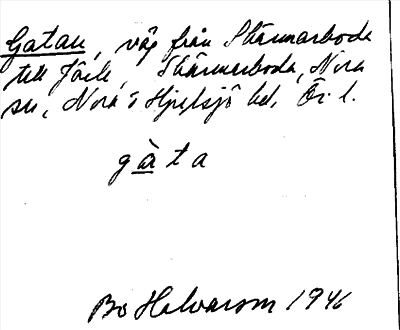 Gatan, väg från Skärmarboda
till Järle, Skärmarboda, Nora
sn, Nora o Hjulsjö bd, Ör. l.
gàta
Bo Halvarson 1946